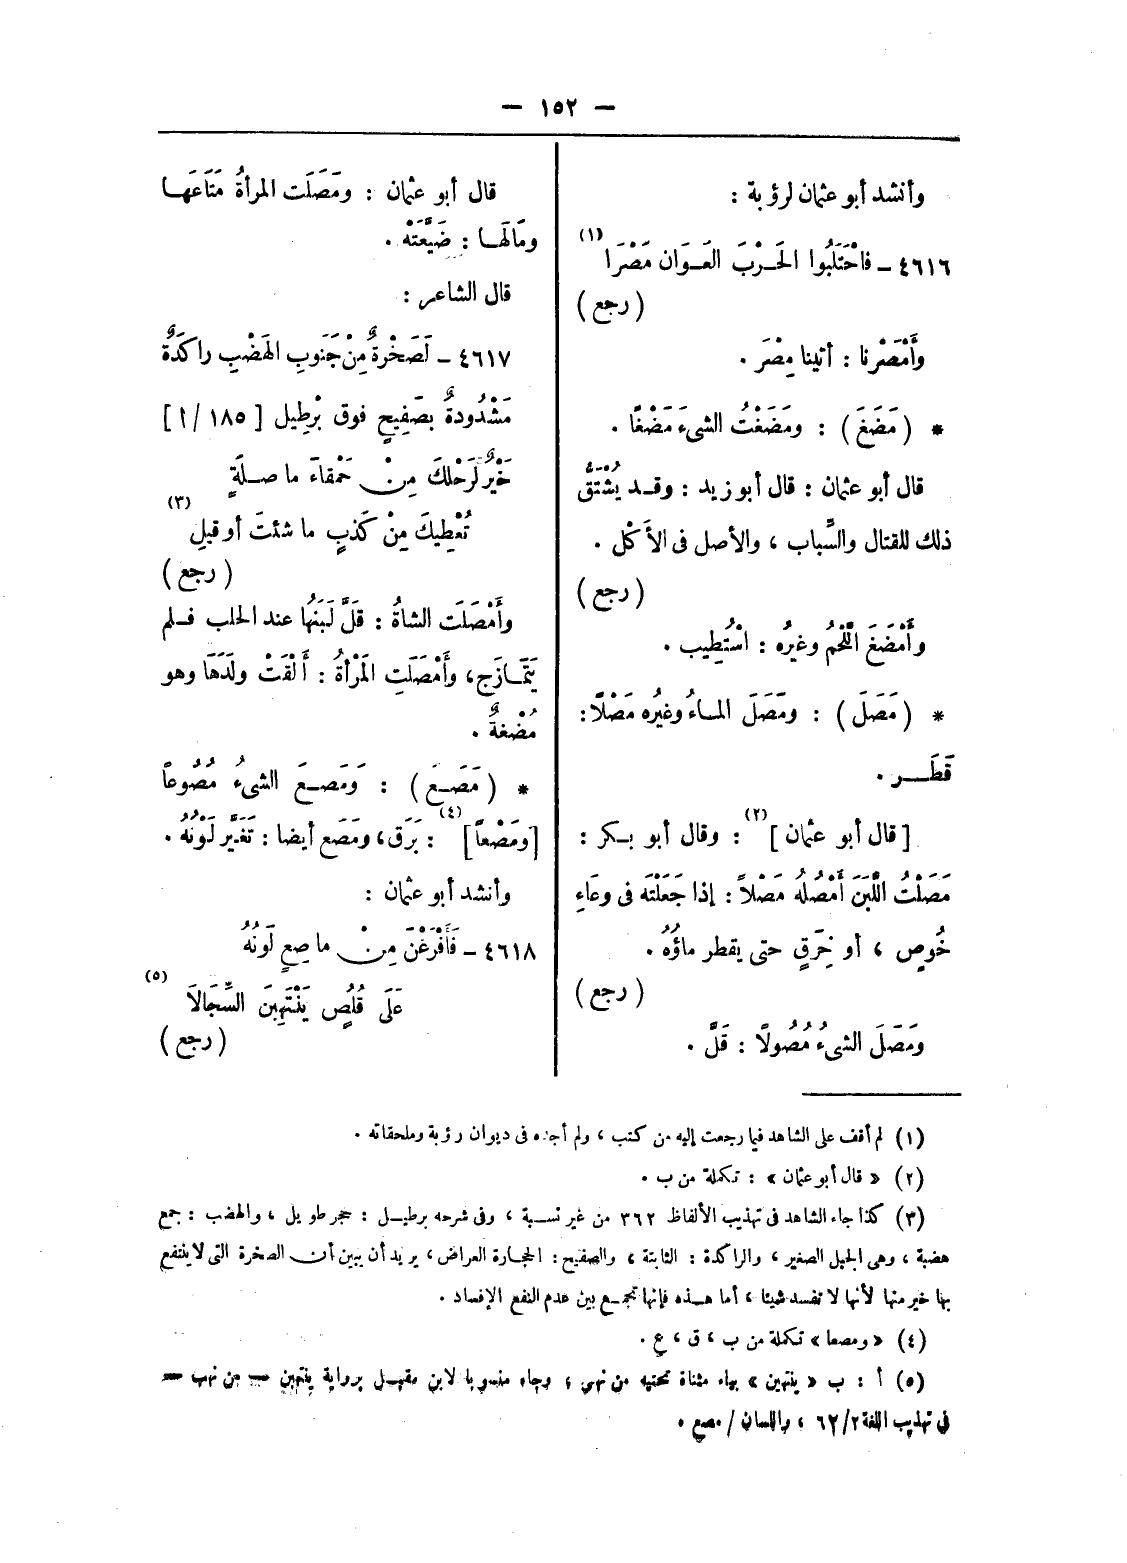 — ١٥٢ —
وأنشد أبو عثمان لرؤبة :
٤٦١٦ ــ فاحْتَلَبُوا الحَـرْبَ العَـوَان مَصْرَا (١)
( رجع )
وأَمْصَرْنا : أتينا مِصْرَ .
* ( مَضَغَ ) : ومَضَغْتُ الشىءَ مَضْغًا .
قال أبو عثمان : قال أبو زيد : وقـد يُشْتَقُّ
ذلك للقتال والسِّباب ، والأصل فى الأَكْل .
( رجع )
وأَمْضَغَ اللَّحْمُ وغيرُه : اسْتُطِيب .
* ( مَصَلَ ) : ومَصَلَ المـاءُ وغيرُه مَصْلًا :
قَطَــر .
[ قال أبو عثمان ] (٢) : وقال أبو بـكر :
مَصَلْتُ اللَّبَنَ أَمْصُلُه مَصْلاً : إذا جَعَلْتَه فى وعَاءِ
خُوصٍ ، أو خِرَقٍ حتى يقطر ماؤُهُ .
( رجع )
ومَصَلَ الشىءُ مُصُولًا : قَلَّ .
قال أبو عثمان : ومَصَلَت المرأةُ مَتَاعَهـا
ومَالَهـا : ضَيَّعَتْه .
قال الشاعر :
٤٦١٧ ــ لَصَخْرةٌ مِنْ جَنوبِ الهَضْبِ راكَدَةٌ
مَشْدُودةٌ بصَفِيحٍ فوق بْرِطِيل [ ١٨٥ / ا ]
خَيْرٌ لَرَحْلكَ مِـنْ حَمْقاءَ ما صـلَةٍ
تُعْطِيكَ مِنْ كَذبٍ ما شئتَ أو قيلِ (٣)
( رجع )
وأَمْصَلَت الشاةُ : قَلَّ لَبَنُها عند الحلب فـلم
يَتَمَـازَج ، وأَمْصَلَتِ المَرْأةُ : أَلْقَتْ ولَدَهَا وهو
مُضْغَةٌ .
* ( مَصَـعَ ) : وَمَصـعَ الشىءُ مُصُوعاً
[ ومَصْعاً ] (٤) : بَرَق ، ومَصَع أيضا : تَغَيَّر لَوْنُهُ .
وأنشد أبو عثمان :
٤٦١٨ ــ فَأَفْرَغْنَ مِـنْ ما صِعٍ لَونُهُ
عَلَى قُلُصٍ يَنْتَهِبنَ السِّجَالَا (٥)
( رجع )
(١) لم أقف على الشاهد فيما رجعت إليه من كتب ، ولم أجده فى ديوان رؤبة وملحقاته .
(٢) « قال أبو عثمان » : تكملة من ب .
(٣) كذا جاء الشاهد فى تهذيب الألفاظ ٣٦٢ من غير نسـبة ، وفى شرحه برطيـل : حجر طويل ، والهضب : جمع
هضبة ، وهى الجبل الصغير ، والراكدة : الثابتة ، والصفيح : الحجارة العراض ، يريد أن يبين أن الصخرة التى لا ينتفع
بها خير منها لأنها لا تفسد شيئا ، أما هـذه فإنها تجمـع بين عدم النفع الإفساد .
(٤) « ومصعا » تكملة من ب ، ق ، ع .
(٥) أ : ب « ينتهين » بهاء مثناة تحتيه من نهى ، وجاء منسوبا لابن مقبـل برواية ينتهبن — من نهب —
فى تهذيب اللغة ٢/٦٢ ، واللسان / مصع .